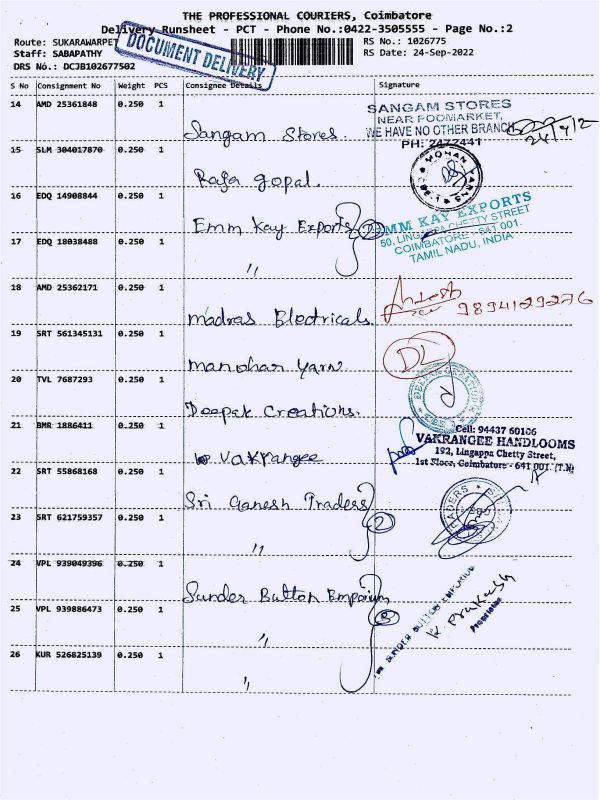 THE PROFESSIONAL COURIERS, Coimbatore
Delivery Runsheet - PCT - Phone No.:0422-3505555 - Page No.:2
DOCUMENT DELIVERY
Route: SUKARAWARPET
RS No.: 1026775
Staff: SABAPATHY
RS Date: 24-Sep-2022
DRS No.: DCJB102677502
S No Consignment No Weight PCS Consignee Details Signature
14 AMD 25361848 0.250 1
Sangam Stores.
SANGAM STORES
NEAR POOMARKET,
WE HAVE NO OTHER BRANCH
PH: 2472441
15 SLM 304017870 0.250 1
Raja gopal.
MOHAN YARNS
16 EDQ 14908844 0.250 1
Emm Kay Exports 2
EMM KAY EXPORTS
50, LINGAPPA CHETTY STREET
COIMBATORE - 641 001.
TAMIL NADU, INDIA
17 EDQ 18038488 0.250 1
"
18 AMD 25362171 0.250 1
Madras Electricals.
9894129276
19 SRT 561345131 0.250 1
Manohar Yarn
DL
20 TVL 7687293 0.250 1
Deepak Creations.
21 BMR 1886411 0.250 1
Vakrangee
Cell: 94437 60106
VAKRANGEE HANDLOOMS
192, Lingappa Chetty Street,
1st Floor, Coimbatore - 641 001. (T.N)
22 SRT 55868168 0.250 1
Sri Ganesh Traders 2
23 SRT 621759357 0.250 1
"
24 VPL 939049396 0.250 1
Sunder Button Emporium 3
SUNDER BUTTON EMPORIUM
K. Prakash
25 VPL 939886473 0.250 1
"
26 KUR 526825139 0.250 1
"